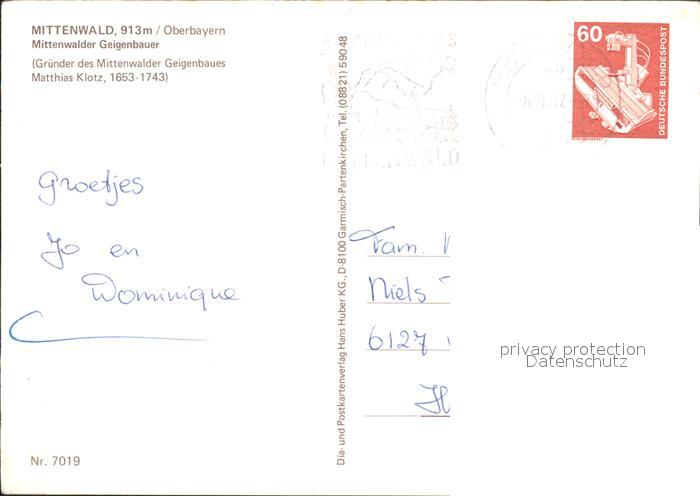 MITTENWALD, 913 m / Oberbayern
Mittenwalder Geigenbauer
(Gründer des Mittenwalder Geigenbaues
Matthias Klotz, 1653-1743)
Groetjes
Jo en
Dominique
Nr. 7019
Dia- und Postkartenverlag Hans Huber KG., D-8100 Garmisch-Partenkirchen, Tel. (08821) 59048
MITTENWALD
60
DEUTSCHE BUNDESPOST
Fam.
Niels
6127
privacy protection
Datenschutz